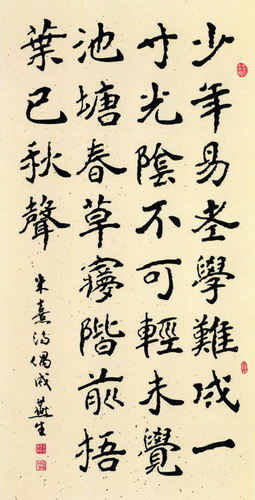 少年易老學難成一
寸光陰不可輕未覺
池塘春草夢階前梧
葉已秋聲
朱熹詩偶成 燕生